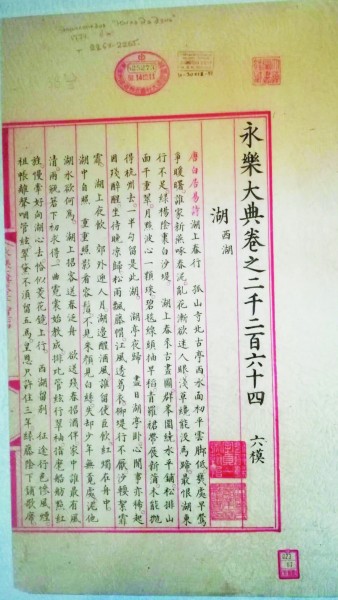 永樂大典卷之二千二百六十四 六模
湖 西湖
唐白居易詩 湖上春行 孤山寺北古亭西水面初平雲脚低幾處早鶯
爭暖樹誰家新燕啄春泥亂花漸欲迷人眼淺草纔能没馬蹄最恨湖東
行不足綠楊陰裏白沙堤 湖上春來古畫圖群峯圍繞水平鋪松排山
面千重翠月點波心一顆珠碧毯線頭抽早稻青羅裙帶展新蒲未能拋
得杭州去一半勾留是此湖 湖亭夜歸 盡日湖亭卧心閒事亦稀起
因殘醉醒坐待晚凉歸松雨飄藤帽江風透葛衣柳堤行不厭沙軟絮霏
霏 湖上夜飲 郭外迎人月湖邊醒酒風誰留使臣飲紅燭在舟中
湖中自照 重重照影看容鬢不見朱顏見白絲失却少年無覓處泥他
湖水欲何為 湖上招客送春泛舟 欲送殘春招酒伴客中誰最有風
情兩瓶若下初求得一曲霓裳始教成排比管絃行翠袖指麾船舫點紅
旌慢牽好向湖心去恰似菱花鏡上行 西湖留別 征途行色慘風煙
祖帳離聲咽管絃翠黛不須留五馬皇恩只許住三年綠藤陰下鋪歌席